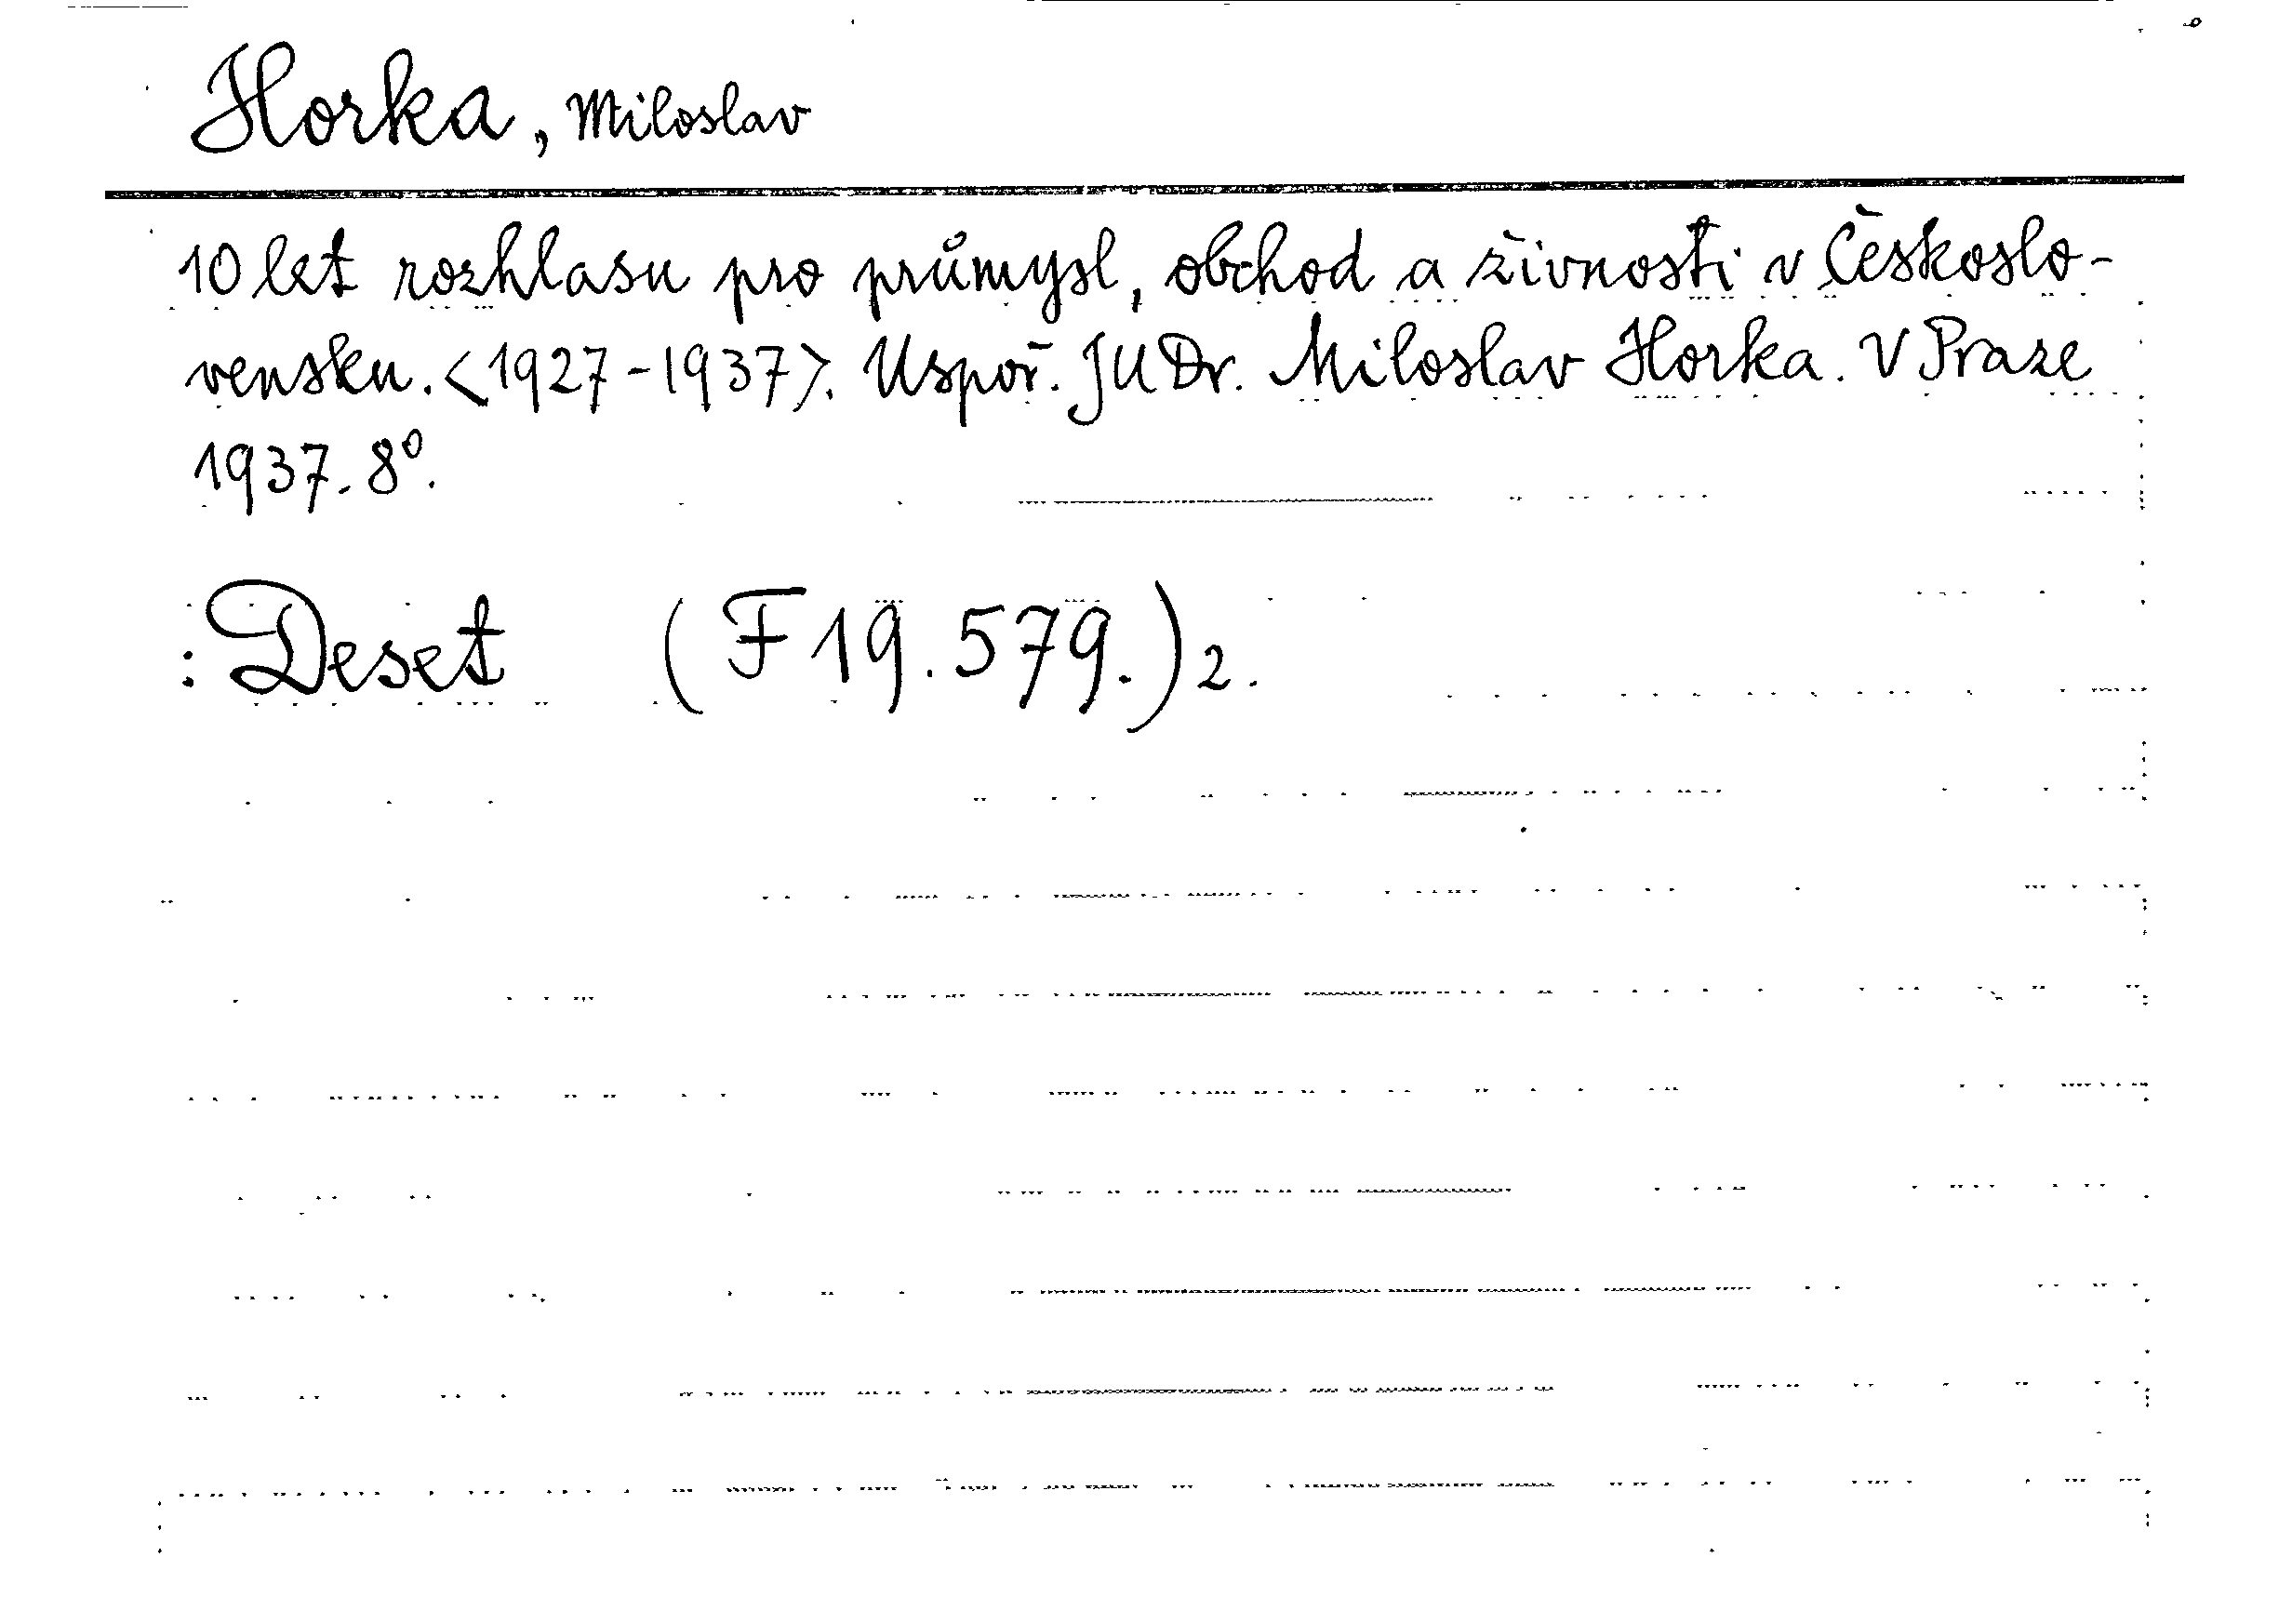 Horka, Miloslav
10 let rozhlasu pro průmysl, obchod a živnosti v Českoslo-
vensku. <1927-1937>. Uspoř. JUDr. Miloslav Horka. V Praze
1937. 8°.
: Deset (F 19.579.) 2.